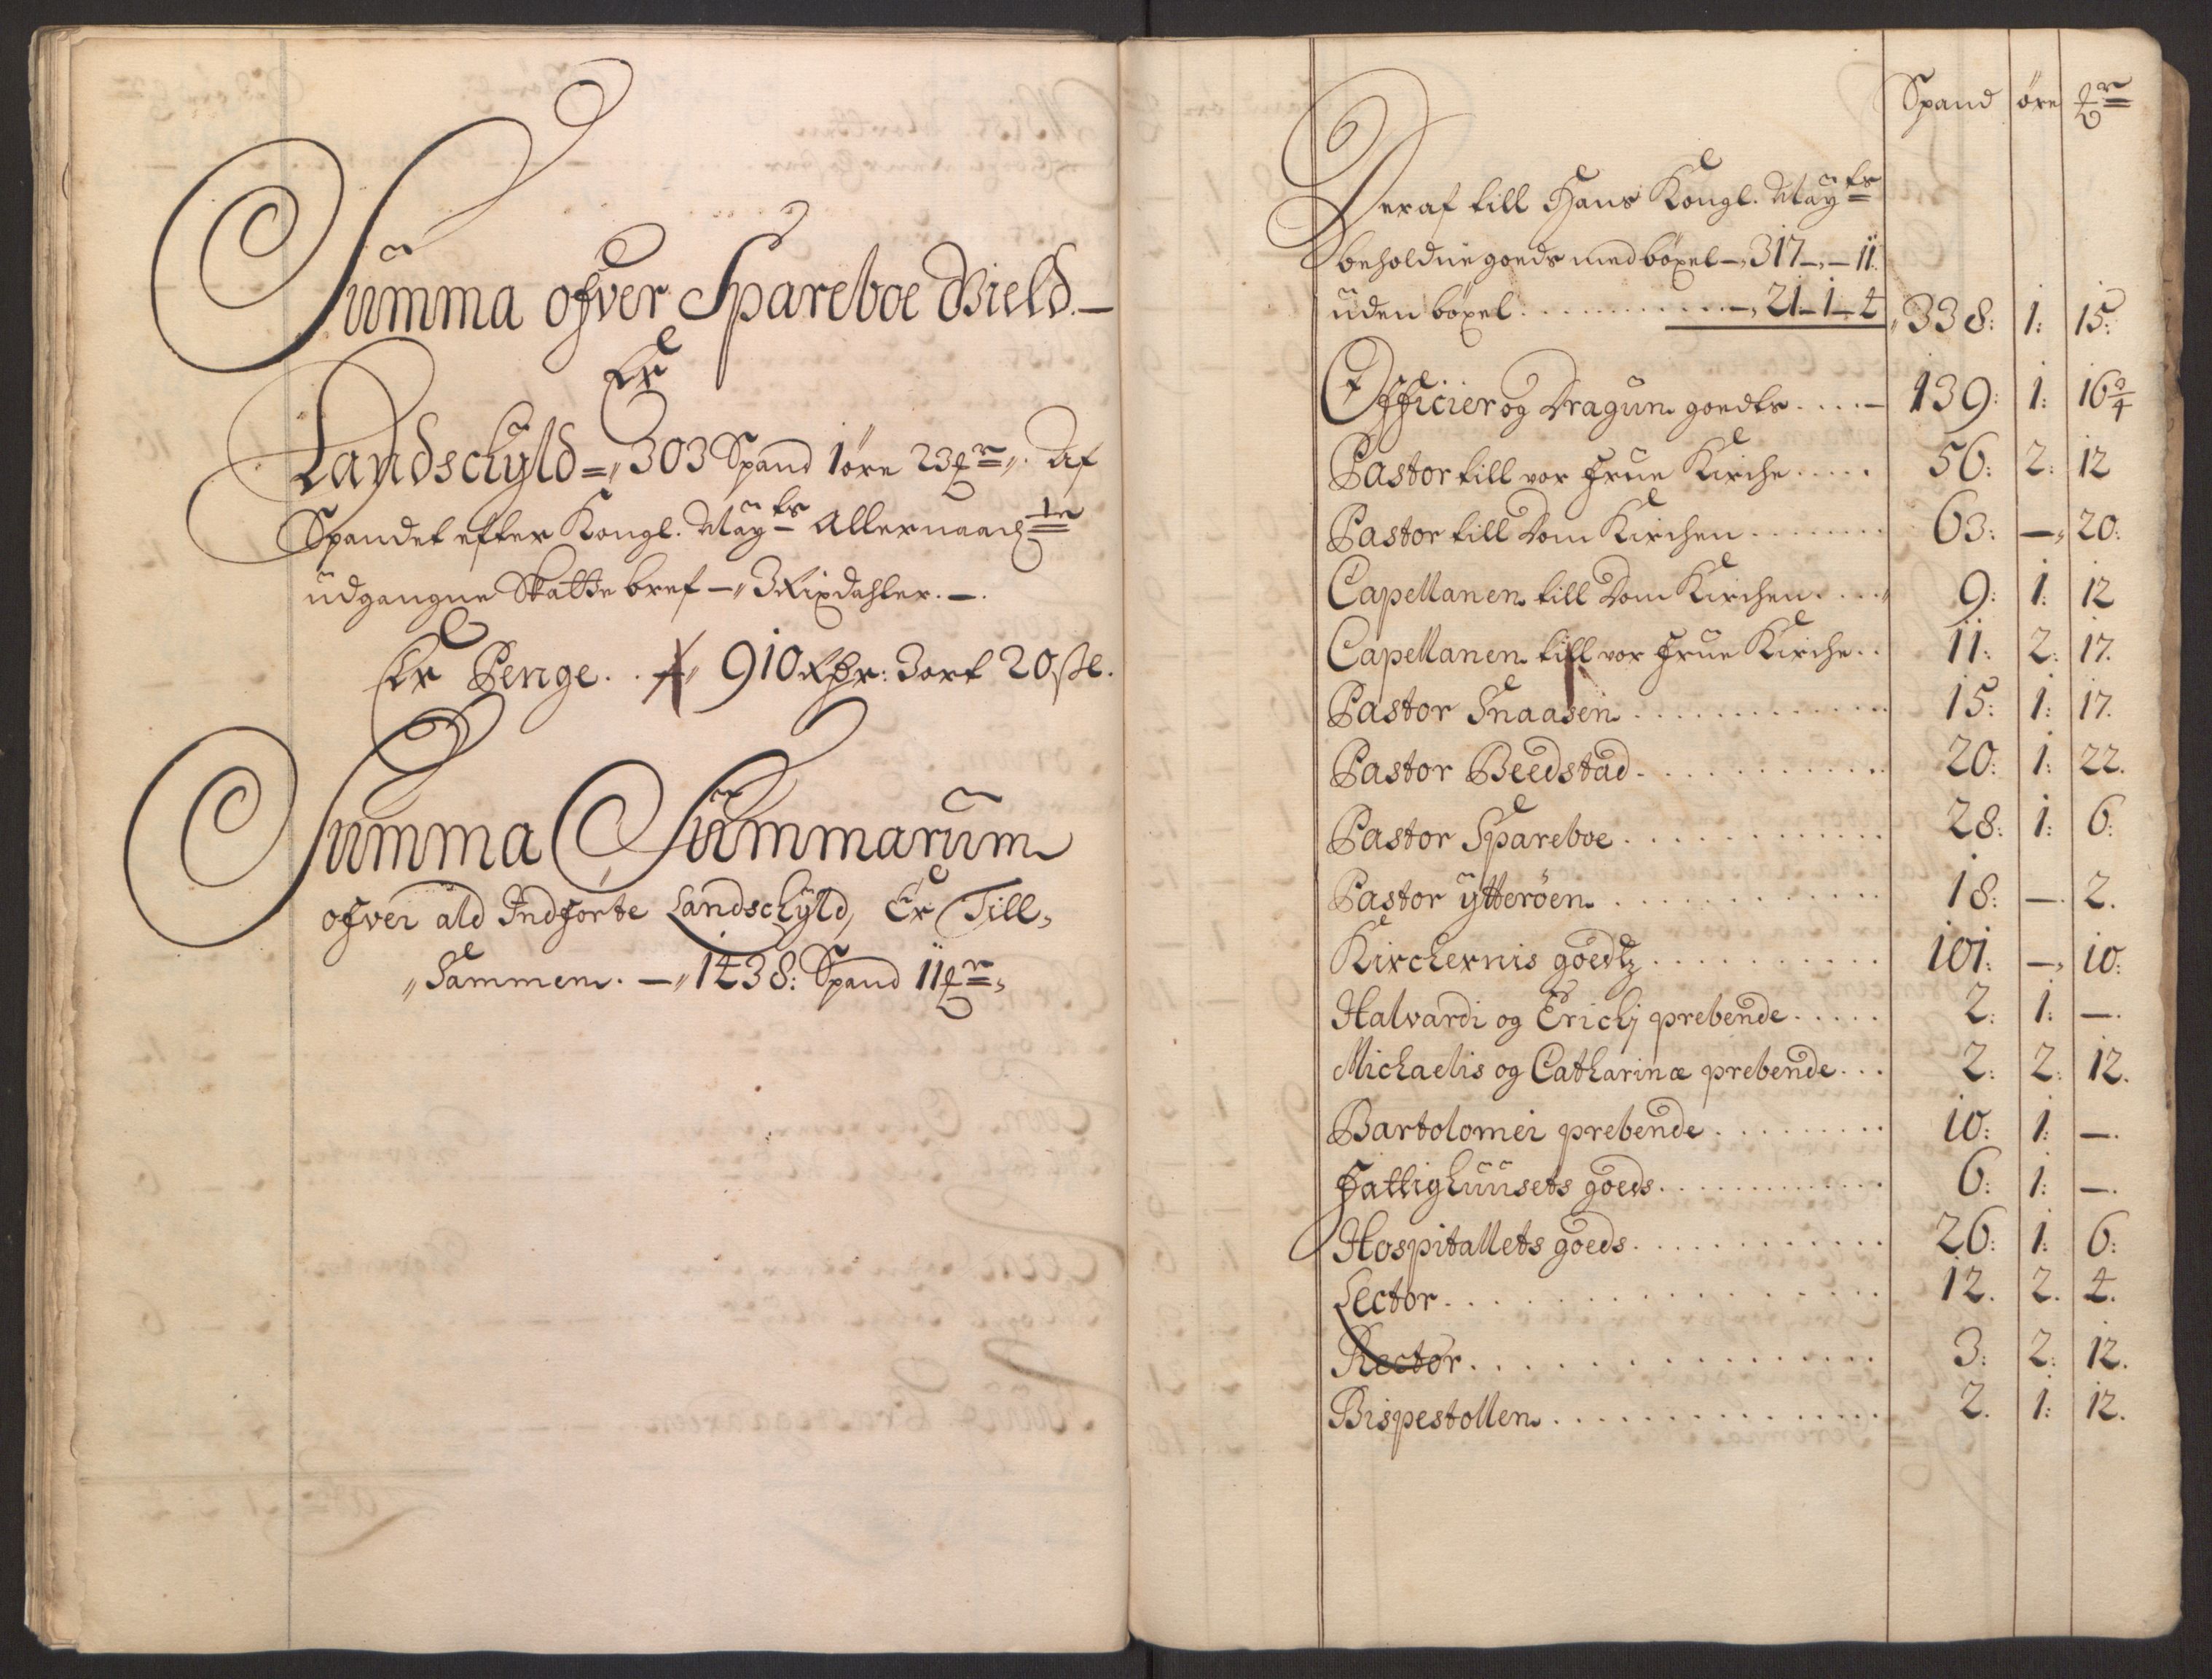 Summa ofver Spareboe Gield. —
Er
Landschyld = „ 303 Spand 1 øre 23 ₰r „. Af
Spandet efter Kongl. Mayts Allernaadste
udgangne Skatte bref — „ 3 Rixdahler. —.
Er Penge . . „ 910 Rdr: 3 ort 20 sk.
Summa Summarum
ofver ald Indførte Landschyld, Er Till„
„Sammen. — „ 1238: Spand 11 ₰r „
Spand øre ₰r
Deraf till Hans Kongl. Mayts
beholdne goeds med böxel — „ 317 — „ — 11.
uden böxel . . . . . . . . . . — „ 21 — 1 — 4 „ 338: 1: 15:
Officier og Dragun goedts . . . . — 139: 1: 16 3/4
Pastor till vor Frue Kirche . . . . . 56: 2: 12
Pastor till Dom Kirchen . . . . . . . . 63: — „ 20:
Capellanen till Dom Kirchen . . . . „ 9: 1: 12
Capellanen till vor Frue Kirche . . 11: 2: 17.
Pastor Snaasen . . . . . . . . . . . . 15: 1: 17.
Pastor Beedstad . . . . . . . . . . . . 20: 1: 22.
Pastor Spareboe . . . . . . . . . . . . 28: 1: 6:
Pastor ytterøen . . . . . . . . . . . . 18: —. 2.
Kirchernis goedtz . . . . . . . . . . . 101: — „ 10:
Halvardi og Erichj prebende . . . . . 2: 1: —.
Michaelis og Catharinæ prebende . . . 2: 2: 12.
Bartolomei prebende . . . . . . . . . 10: 1: —.
Fattighuusets goeds . . . . . . . . . . . 6: 1: —.
Hospitallets goeds . . . . . . . . . . . 26: 1: 6:
Lector . . . . . . . . . . . . . . . . 12. 2. 4.
Rector . . . . . . . . . . . . . . . . 3: 2: 12.
Bispestollen . . . . . . . . . . . . . . 2. 1: 12.